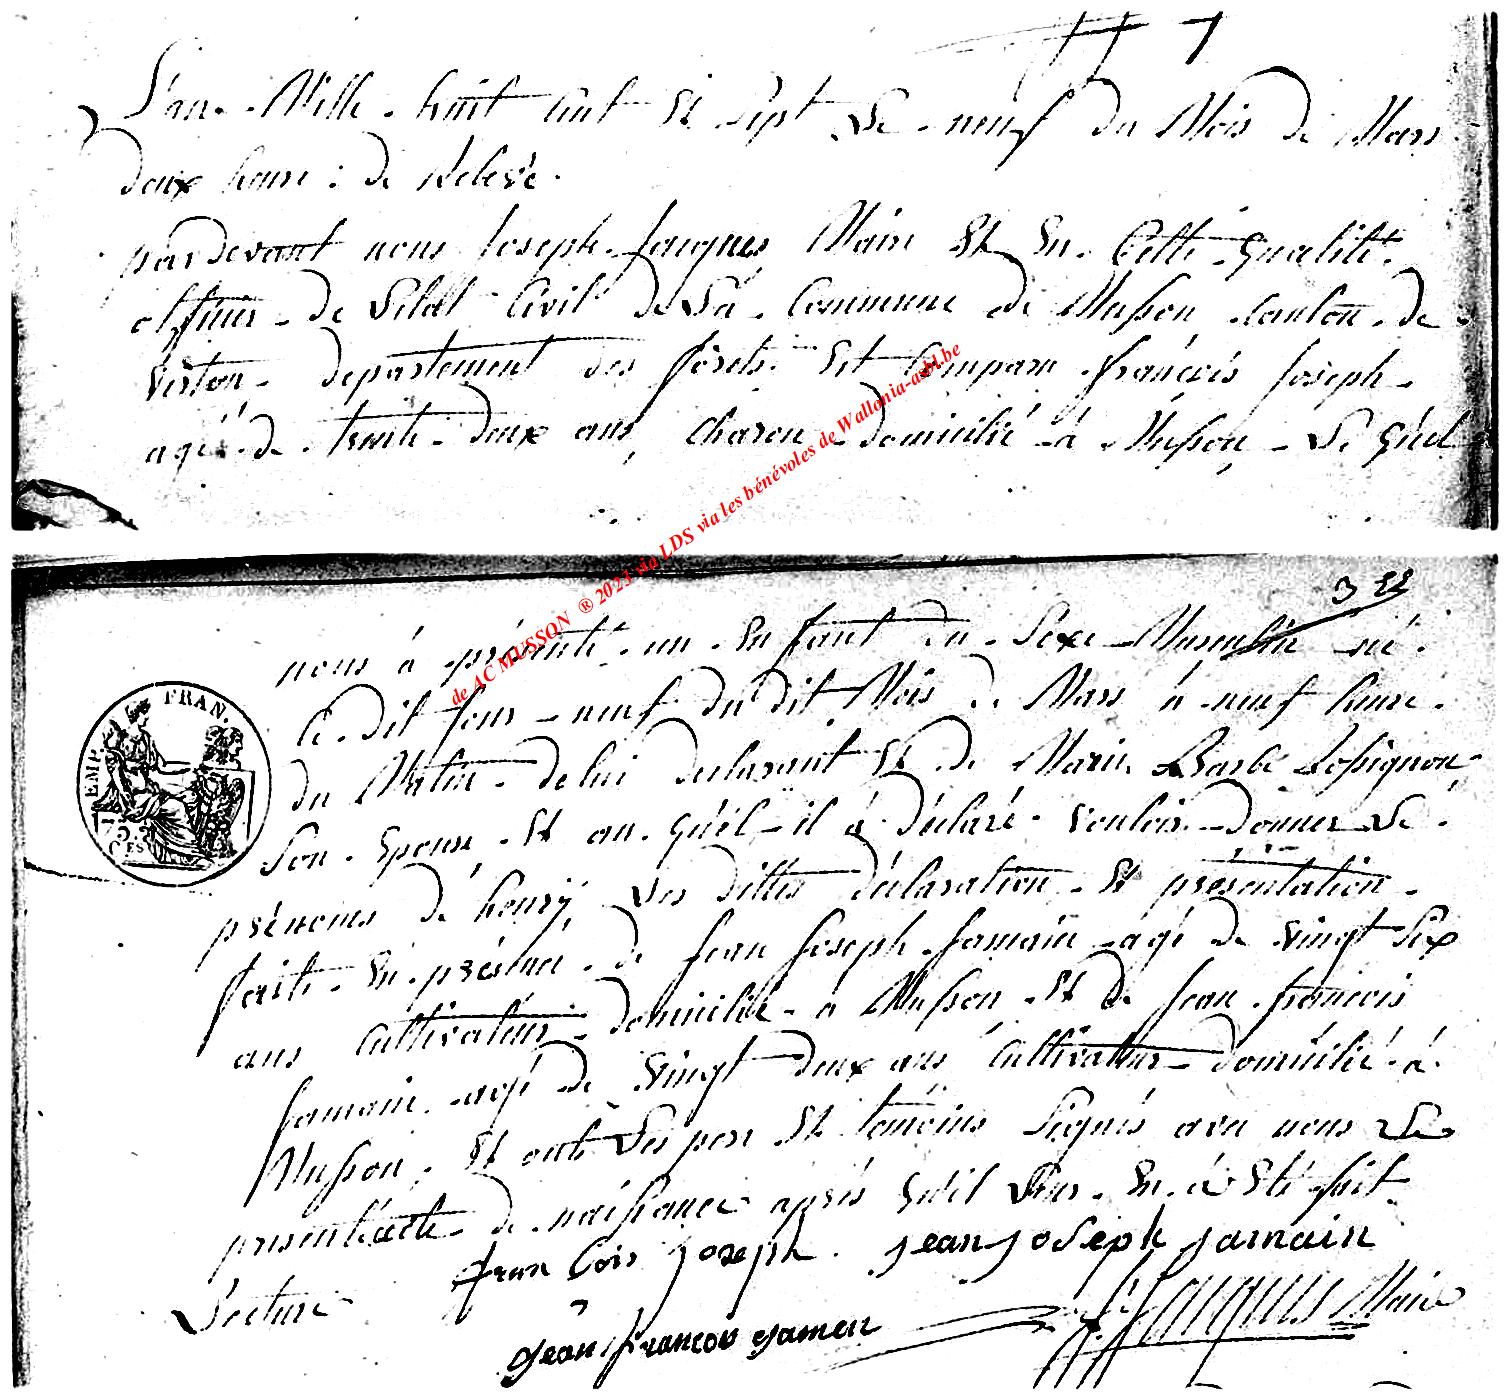 L'an Mille huit cent et sept Le neuf du Mois de Mars
deux heure : de Relevé.
pardevant nous Joseph Jacques Maire et en Cette qualité
officier de L'état Civil de La Commune de Musson canton de
virton departement des forêts. Est Comparu françois Joseph
agé de trente deux ans, charon domicilié à Musson, Le quel
3 22
nous à présenté un Enfant du Sexe Masculin né
Ce dit Jour neuf du dit Mois de Mars à neuf heure
du Matin de lui declarant et de Marie Barbe Rossignon
Son Epouse et au quel il à déclaré vouloir donner Le
prénoms de henrÿ, Les dittes déclaration et présentation
faite En présence de Jean Joseph Jamain agé de vingt Six
ans Cultivateur domicilié à Musson et de Jean françois
Jamain agé de vingt deux ans Cultivateur domicilié à
Musson, et ont Les pere et temoins Signés avec nous Le
present acte de naissance après qu'il Leur En à Eté fait
Lecture
fran Cois joseph. jean joseph jamain
jean francois jamen J. Jacques Maire
EMP. FRAN.
75
CES
de AC MUSSON ® 2023 via LDS via les bénévoles de Wallonia-asbl.be